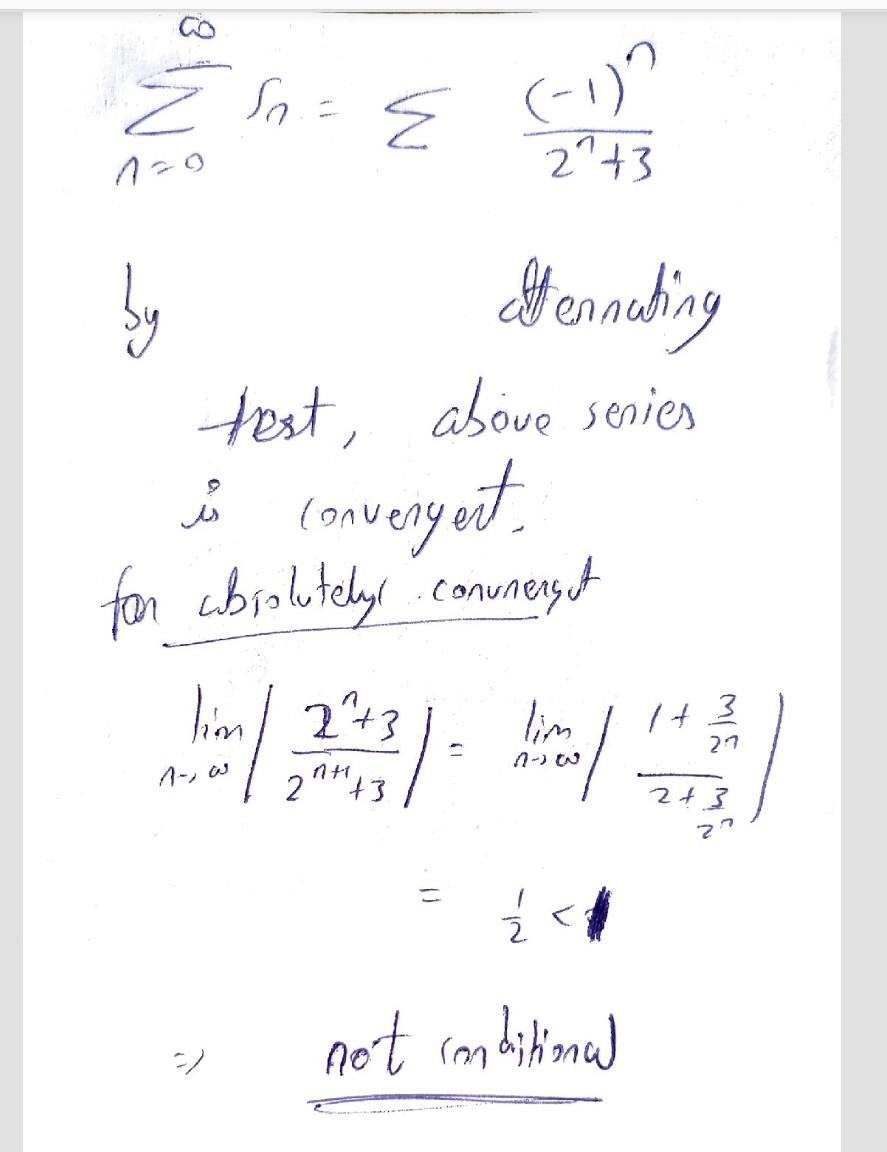 ∞
∑ Sn = ∑ (-1)^n / (2^n+3)
n=0
by alternating
test, above series
is convergent.
for absolutely convergent
lim n→∞ | (2^n+3) / (2^(n+1)+3) | = lim n→∞ | (1+3/2^n) / (2+3/2^n) |
= 1/2 < 1
⇒ not conditional